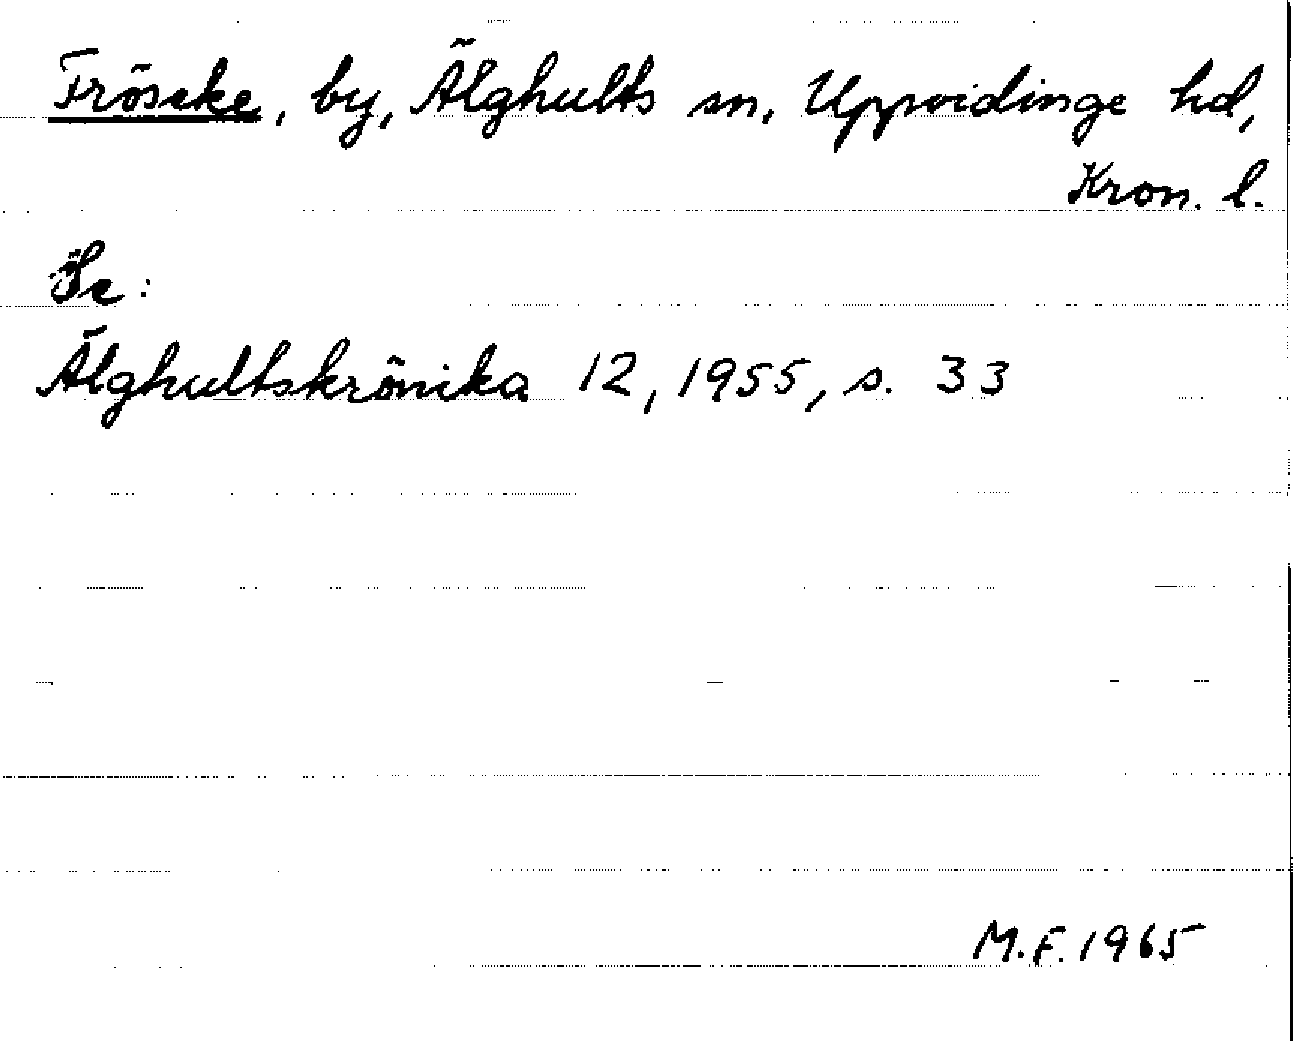 Fröseke, by, Älghults sn, Uppvidinge hd,
Kron. l.
Se:
Älghultskrönika 12, 1955, s. 33
M.F. 1965